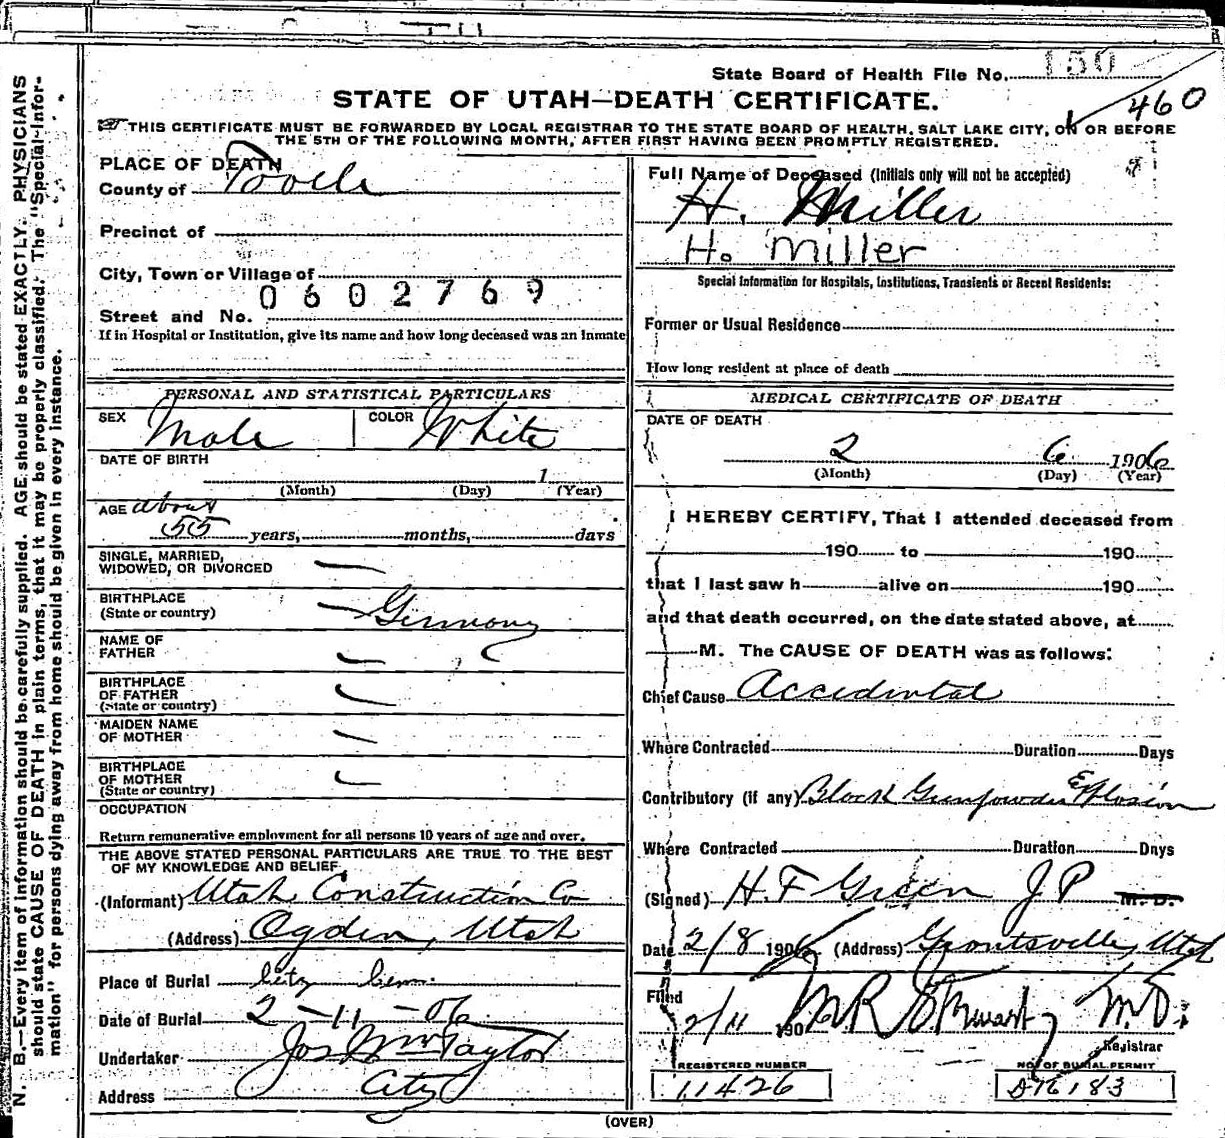 State Board of Health File No. 150
460
STATE OF UTAH—DEATH CERTIFICATE.
THIS CERTIFICATE MUST BE FORWARDED BY LOCAL REGISTRAR TO THE STATE BOARD OF HEALTH, SALT LAKE CITY, ON OR BEFORE
THE 5TH OF THE FOLLOWING MONTH, AFTER FIRST HAVING BEEN PROMPTLY REGISTERED.
N. B.—Every item of information should be carefully supplied. AGE should be stated EXACTLY. PHYSICIANS
should state CAUSE OF DEATH in plain terms, that it may be properly classified. The "Special Infor-
mation" for persons dying away from home should be given in every instance.
PLACE OF DEATH
County of Tooele
Precinct of
City, Town or Village of
0602769
Street and No.
If in Hospital or Institution, give its name and how long deceased was an Inmate
PERSONAL AND STATISTICAL PARTICULARS
SEX Male COLOR White
DATE OF BIRTH
1
(Month) (Day) (Year)
AGE about
55 years, months, days
SINGLE, MARRIED,
WIDOWED, OR DIVORCED —
BIRTHPLACE
(State or country) — Germany
NAME OF
FATHER
BIRTHPLACE
OF FATHER
(State or country)
MAIDEN NAME
OF MOTHER
BIRTHPLACE
OF MOTHER
(State or country)
OCCUPATION
Return remunerative employment for all persons 10 years of age and over.
THE ABOVE STATED PERSONAL PARTICULARS ARE TRUE TO THE BEST
OF MY KNOWLEDGE AND BELIEF
(Informant) Utah Construction Co
(Address) Ogden, Utah
Place of Burial City Cem.
Date of Burial 2-11-06
Undertaker Jos Wm Taylor
Address City
Full Name of Deceased (Initials only will not be accepted)
H. Miller
H. Miller
Special Information for Hospitals, Institutions, Transients or Recent Residents:
Former or Usual Residence
How long resident at place of death
MEDICAL CERTIFICATE OF DEATH
DATE OF DEATH
2 6 1906
(Month) (Day) (Year)
I HEREBY CERTIFY, That I attended deceased from
190 to 190
that I last saw h alive on 190
and that death occurred, on the date stated above, at
M. The CAUSE OF DEATH was as follows:
Chief Cause Accidental
Where Contracted Duration Days
Contributory (if any) Black Gunpowder Explosion
Where Contracted Duration Days
(Signed) H. F Green J P M. D.
Date 2/8 1906 (Address) Grantsville, Utah
Filed
2/11 190 M R Stewart, M.D.
Registrar
REGISTERED NUMBER NO. OF BURIAL PERMIT
11426 D76183
(OVER)